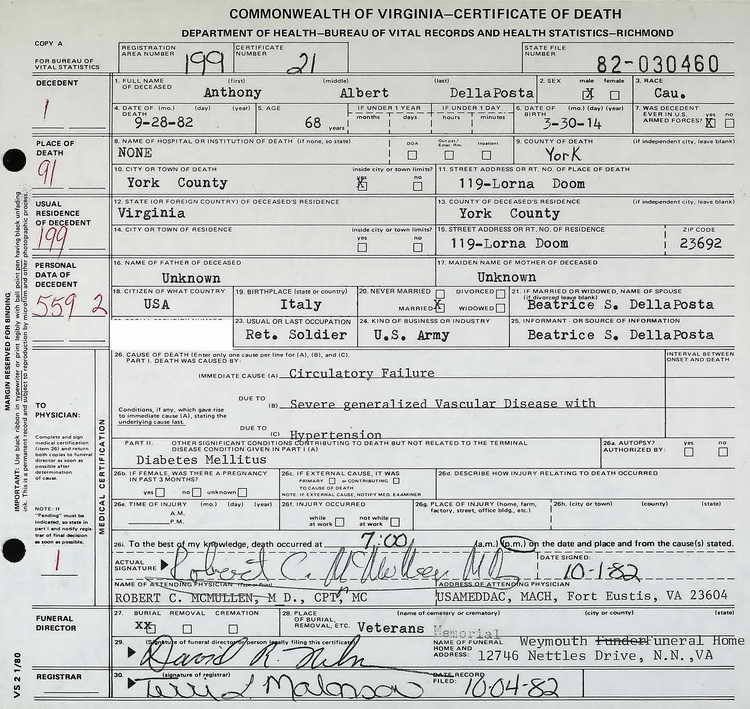 COMMONWEALTH OF VIRGINIA—CERTIFICATE OF DEATH
DEPARTMENT OF HEALTH—BUREAU OF VITAL RECORDS AND HEALTH STATISTICS—RICHMOND
COPY A
FOR BUREAU OF VITAL STATISTICS
REGISTRATION AREA NUMBER 199
CERTIFICATE NUMBER 21
STATE FILE NUMBER 82-030460
DECEDENT
1
1. FULL NAME OF DECEASED (first) (middle) (last)
Anthony Albert DellaPosta
2. SEX male female
X
3. RACE
Cau.
4. DATE OF (mo.) (day) (year) DEATH
9-28-82
5. AGE
68 years
IF UNDER 1 YEAR
months days
IF UNDER 1 DAY
hours minutes
6. DATE OF (mo.) (day) (year) BIRTH
3-30-14
7. WAS DECEDENT EVER IN U.S. ARMED FORCES? yes no
X
PLACE OF DEATH
91
8. NAME OF HOSPITAL OR INSTITUTION OF DEATH (if none, so state)
NONE
DOA Out pat./ Emer. Rm. Inpatient
9. COUNTY OF DEATH (if independent city, leave blank)
York
10. CITY OR TOWN OF DEATH inside city or town limits? yes no
York County X
11. STREET ADDRESS OR RT. NO. OF PLACE OF DEATH
119-Lorna Doom
USUAL RESIDENCE OF DECEDENT
199
12. STATE (OR FOREIGN COUNTRY) OF DECEASED'S RESIDENCE
Virginia
13. COUNTY OF DECEASED'S RESIDENCE (if independent city, leave blank)
York County
14. CITY OR TOWN OF RESIDENCE inside city or town limits? yes no
15. STREET ADDRESS OR RT. NO. OF RESIDENCE ZIP CODE
119-Lorna Doom 23692
PERSONAL DATA OF DECEDENT
559 2
16. NAME OF FATHER OF DECEASED
Unknown
17. MAIDEN NAME OF MOTHER OF DECEASED
Unknown
18. CITIZEN OF WHAT COUNTRY
USA
19. BIRTHPLACE (state or country)
Italy
20. NEVER MARRIED DIVORCED
MARRIED X WIDOWED
21. IF MARRIED OR WIDOWED, NAME OF SPOUSE
(if divorced leave blank)
Beatrice S. DellaPosta
23. USUAL OR LAST OCCUPATION
Ret. Soldier
24. KIND OF BUSINESS OR INDUSTRY
U.S. Army
25. INFORMANT - OR SOURCE OF INFORMATION
Beatrice S. DellaPosta
MARGIN RESERVED FOR BINDING
IMPORTANT: Use black ribbon in typewriter or print legibly with ball point pen having black unfading ink. This is a permanent record and subject to reproduction by microfilm and other photographic process.
MEDICAL CERTIFICATION
TO PHYSICIAN:
Complete and sign medical certification (item 26) and return both copies to funeral director as soon as possible after determination of cause.
NOTE: If "Pending" must be indicated, so state in part I and notify registrar of final decision as soon as possible.
1
26. CAUSE OF DEATH (Enter only one cause per line for (A), (B), and (C).
PART I. DEATH WAS CAUSED BY:
INTERVAL BETWEEN ONSET AND DEATH
IMMEDIATE CAUSE (A) Circulatory Failure
DUE TO
(B) Severe generalized Vascular Disease with
Conditions, if any, which gave rise to immediate cause (A), stating the underlying cause last.
DUE TO
(C) Hypertension
PART II. OTHER SIGNIFICANT CONDITIONS CONTRIBUTING TO DEATH BUT NOT RELATED TO THE TERMINAL DISEASE CONDITION GIVEN IN PART I (A)
Diabetes Mellitus
26a. AUTOPSY? AUTHORIZED BY: yes no
26b. IF FEMALE, WAS THERE A PREGNANCY IN PAST 3 MONTHS?
yes no unknown
26c. IF EXTERNAL CAUSE, IT WAS
PRIMARY or CONTRIBUTING
TO CAUSE OF DEATH
NOTE: IF EXTERNAL CAUSE, NOTIFY MED. EXAMINER
26d. DESCRIBE HOW INJURY RELATING TO DEATH OCCURRED
26e. TIME OF INJURY (mo.) (day) (year)
A.M.
P.M.
26f. INJURY OCCURRED
while at work not while at work
26g. PLACE OF INJURY (home, farm, factory, street, office bldg., etc.)
26h. (city or town) (county) (state)
26i. To the best of my knowledge, death occurred at 7:00 (a.m.) (p.m.) on the date and place and from the cause(s) stated.
ACTUAL SIGNATURE Robert C. McMullen MD
DATE SIGNED:
10-1-82
NAME OF ATTENDING PHYSICIAN (Type or Print)
ROBERT C. MCMULLEN, M D., CPT, MC
ADDRESS OF ATTENDING PHYSICIAN
USAMEDDAC, MACH, Fort Eustis, VA 23604
FUNERAL DIRECTOR
27. BURIAL REMOVAL CREMATION
XX
28. PLACE OF BURIAL, REMOVAL, ETC. (name of cemetery or crematory) (city or county) (state)
Veterans Memorial
29. (Signature of funeral director or person legally filing this certificate)
David R. 
NAME OF FUNERAL HOME AND ADDRESS:
Weymouth Funder Funeral Home
12746 Nettles Drive, N.N.,VA
REGISTRAR
30. (signature of registrar)
Terri L
DATE RECORD FILED: 10-04-82
VS 2 1/80